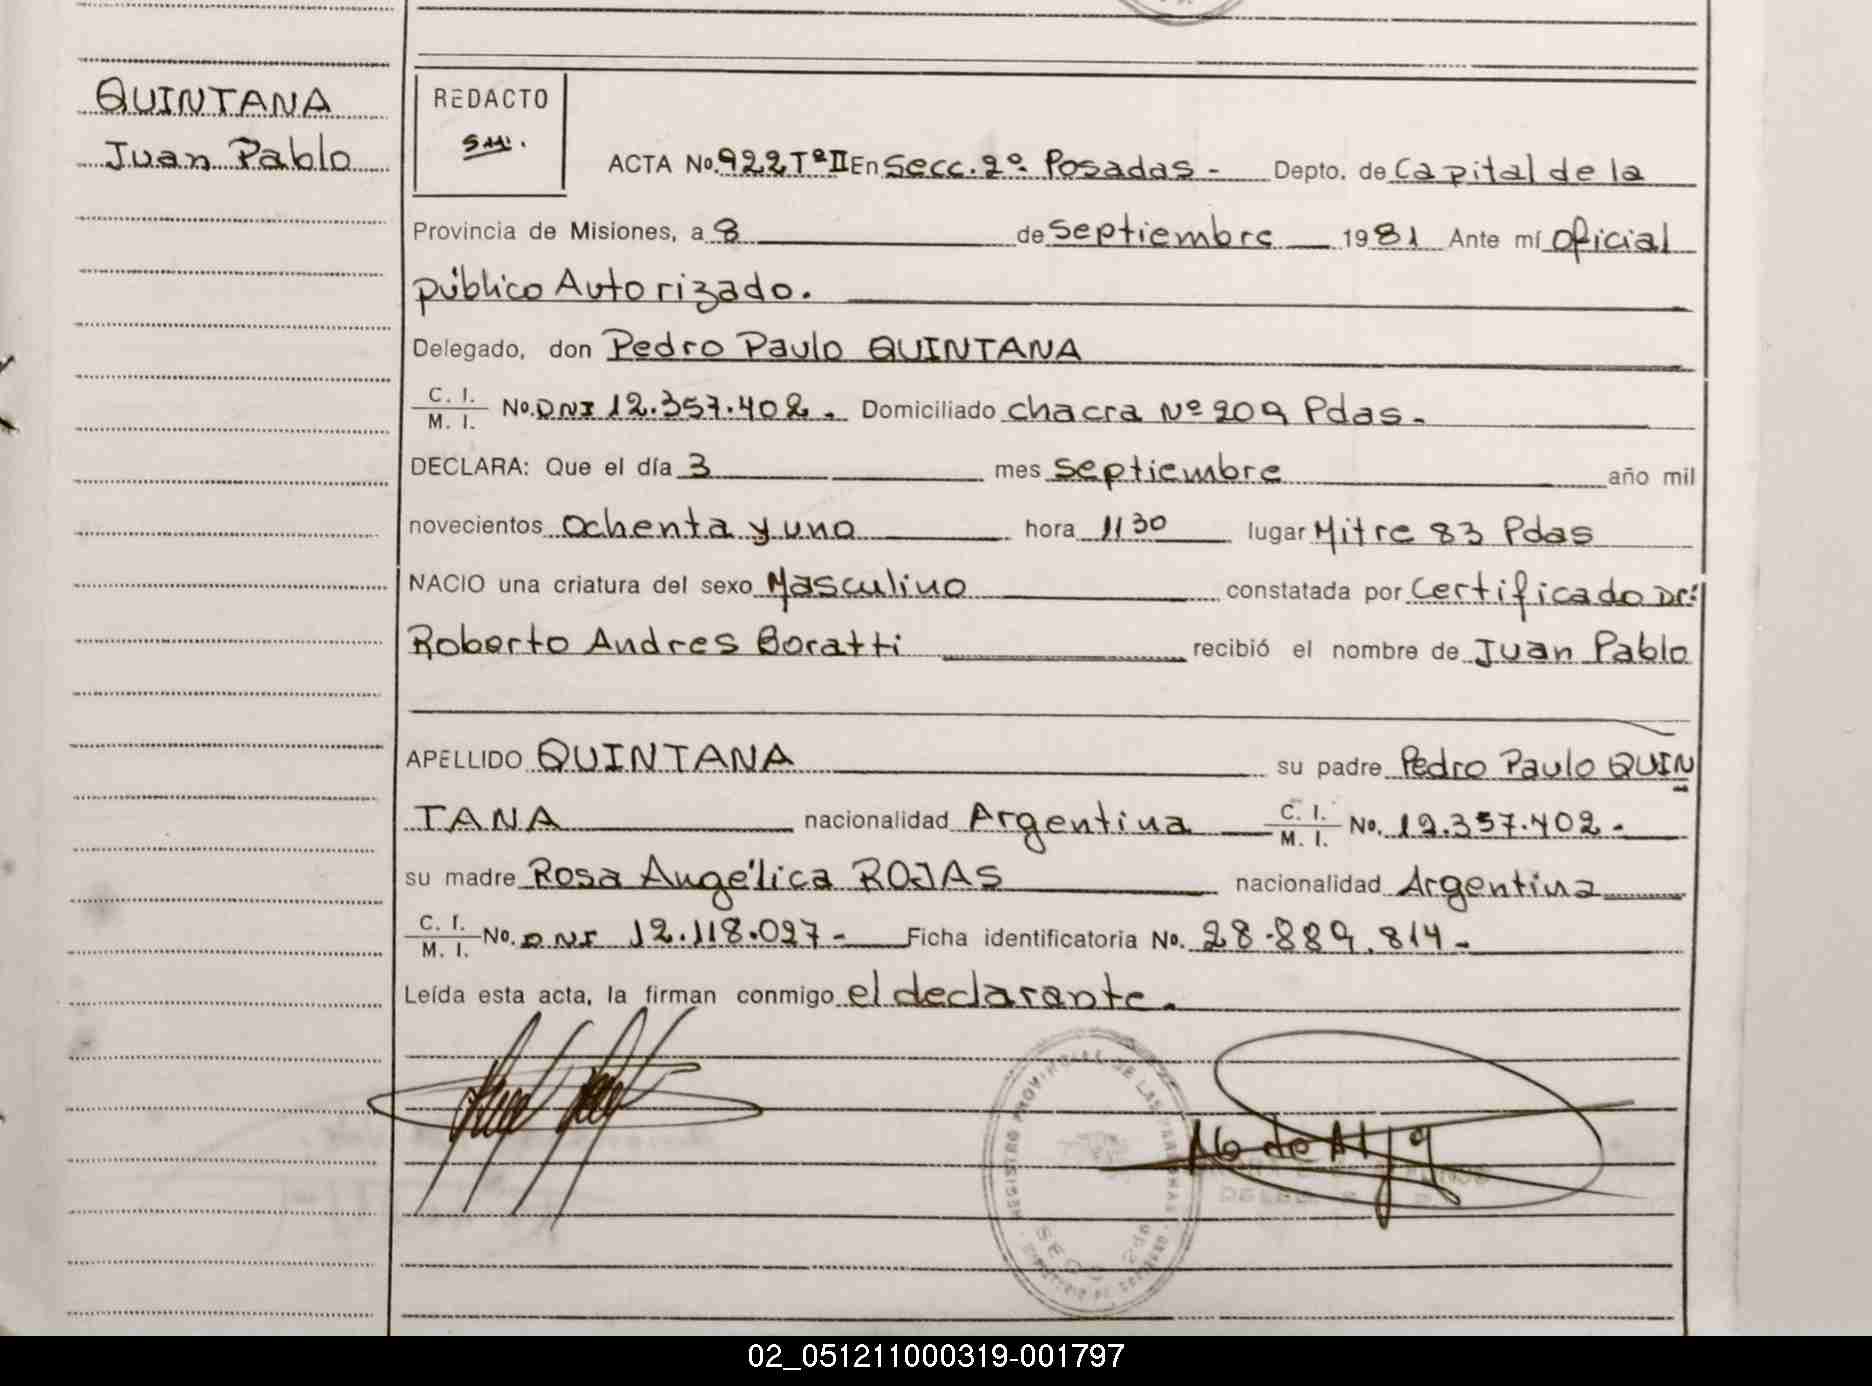 QUINTANA
Juan Pablo
REDACTO
ACTA No. 922 Tº II En Secc. 2º. Posadas - Depto. de Capital de la
Provincia de Misiones, a 8 de septiembre 1981 Ante mí oficial
público Autorizado.
Delegado, don Pedro Paulo QUINTANA
C. I.
M. I. No. DNI 12.357.402. Domiciliado chacra Nº 209 Pdas.
DECLARA: Que el día 3 mes septiembre año mil
novecientos ochenta y uno hora 11 30 lugar Mitre 83 Pdas
NACIO una criatura del sexo Masculino constatada por Certificado Dr:
Roberto Andres Boratti recibió el nombre de Juan Pablo
APELLIDO QUINTANA su padre Pedro Paulo QUIN
TANA nacionalidad Argentina C. I.
M. I. No. 12.357.402-
su madre Rosa Angélica ROJAS nacionalidad Argentina
C. I.
M. I. No. DNI 12.118.027- Ficha identificatoria No. 28.889.814-
Leída esta acta, la firman conmigo el declarante.
REGISTRO PROVINCIAL DE LAS PERSONAS
SECC. 2da
02_051211000319-001797